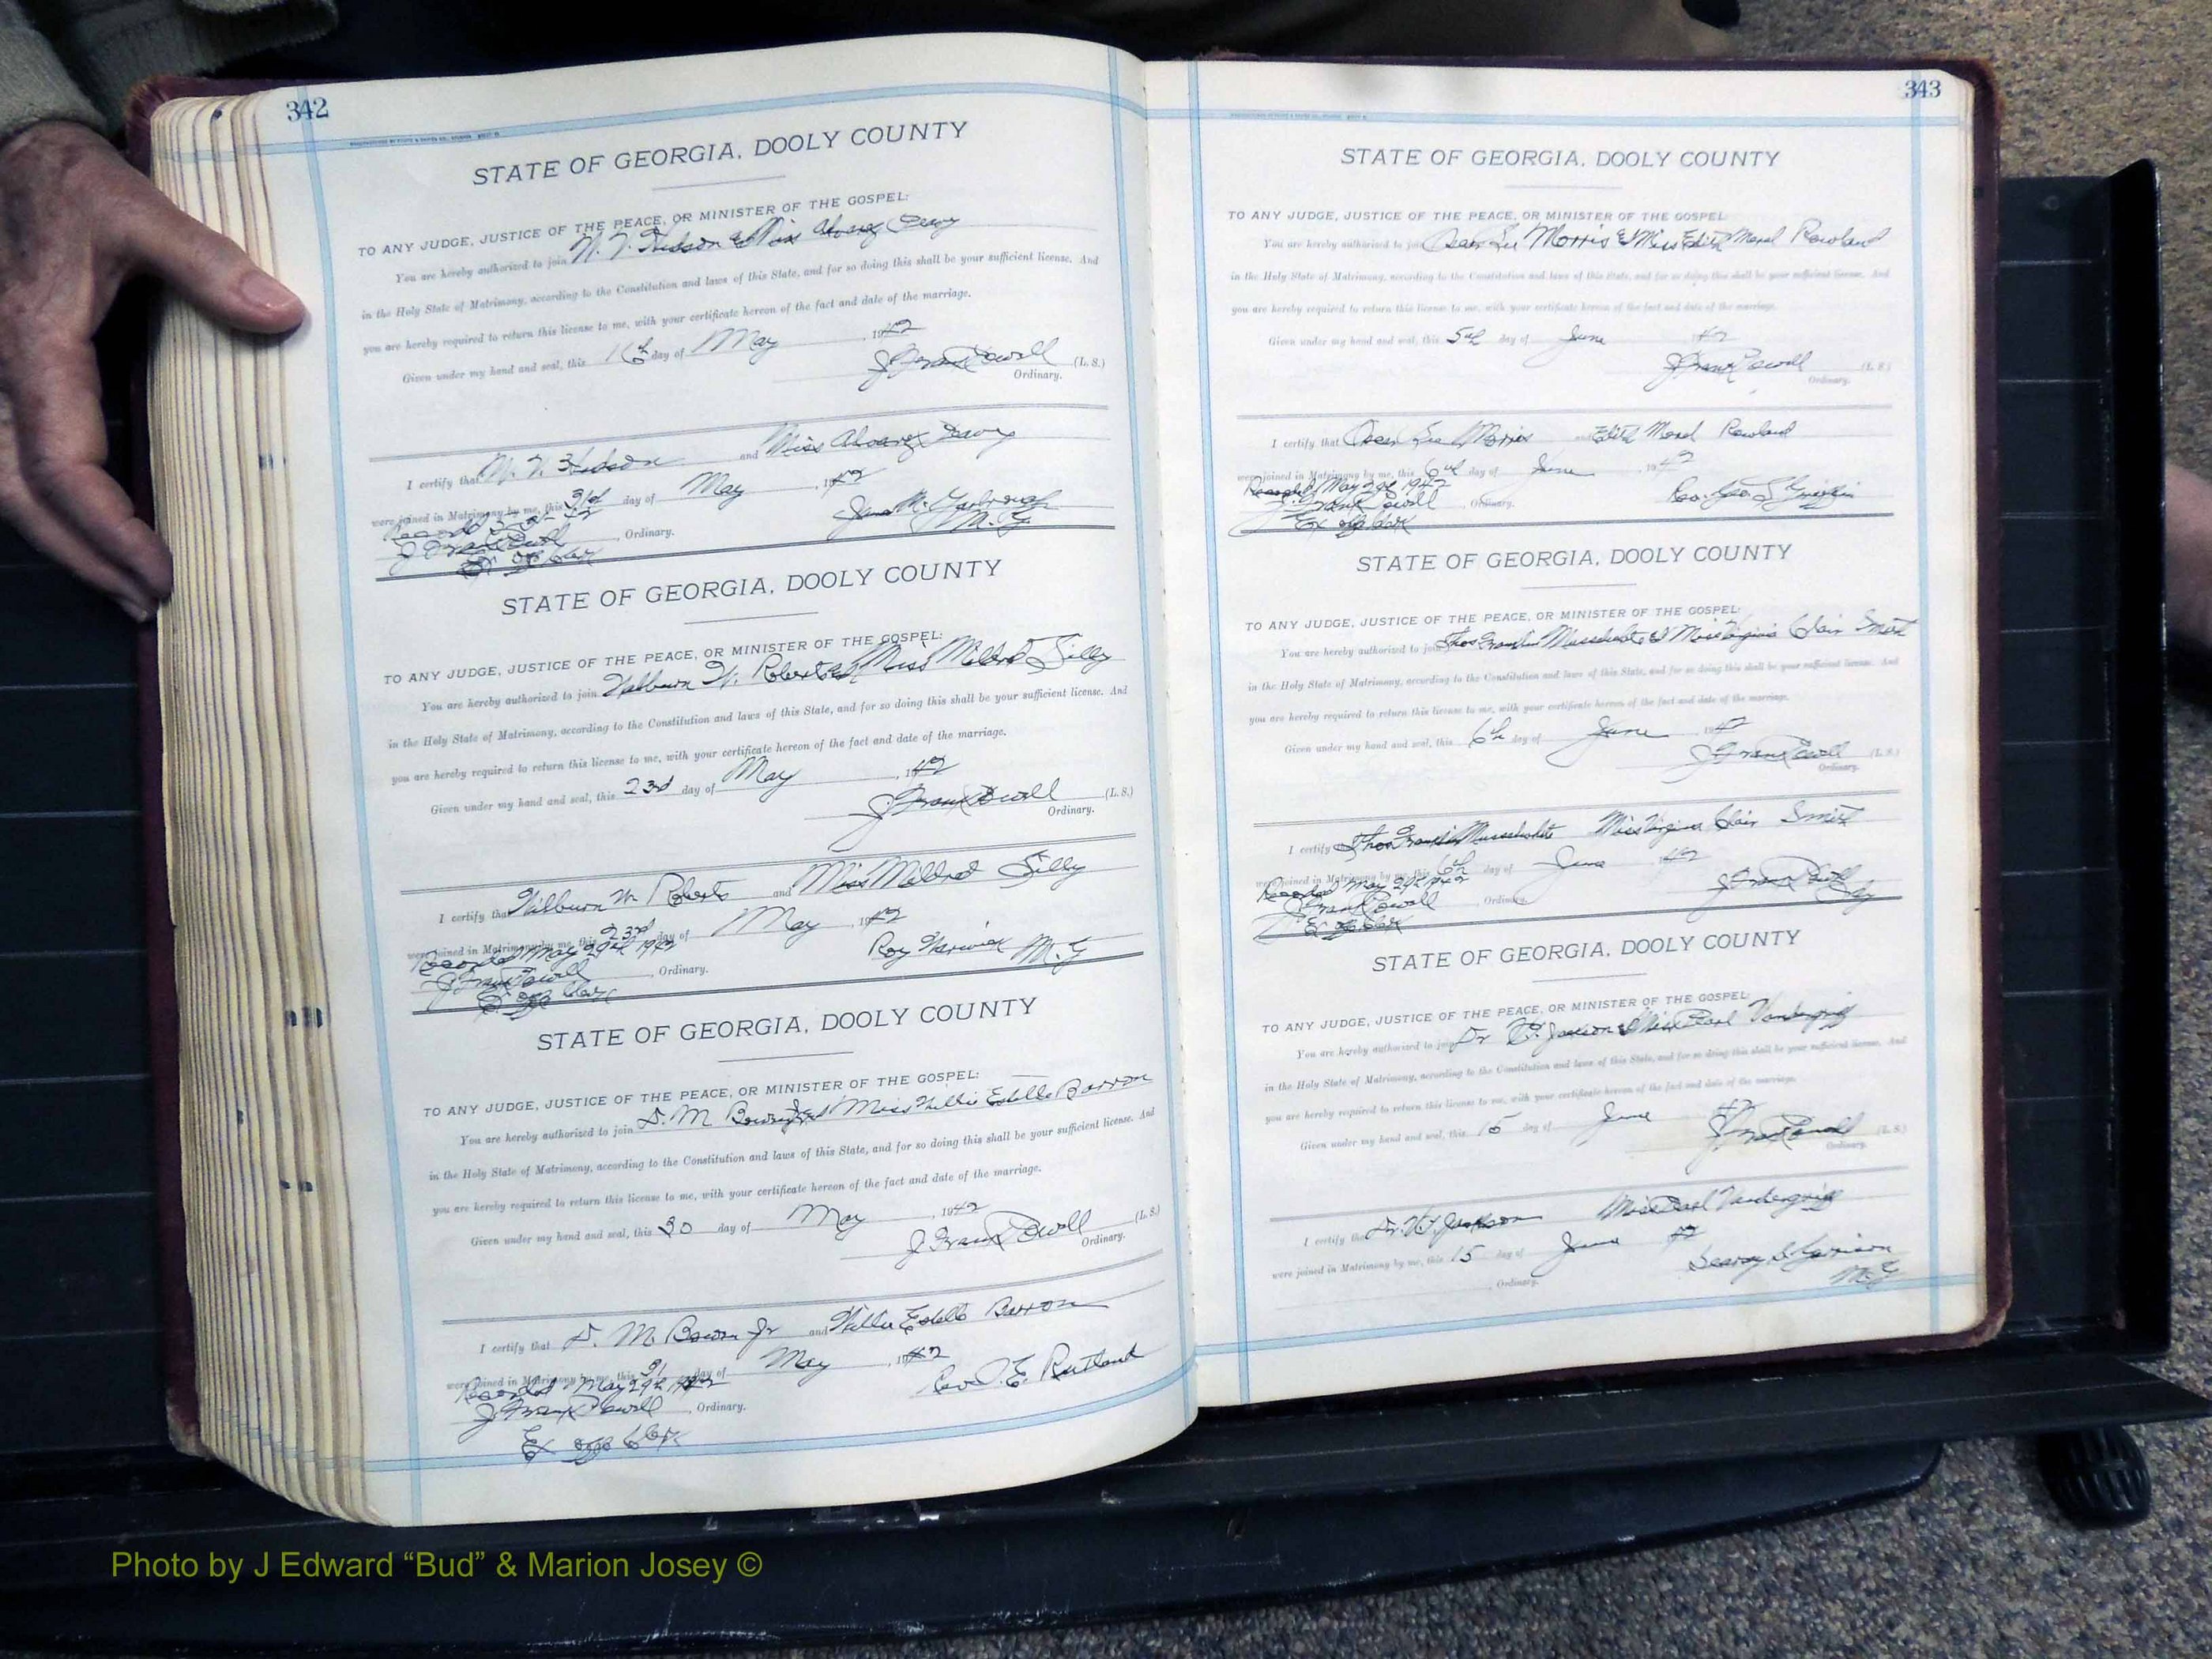 342
STATE OF GEORGIA, DOOLY COUNTY
TO ANY JUDGE, JUSTICE OF THE PEACE, OR MINISTER OF THE GOSPEL:
You are hereby authorized to join Hudson & Miss
in the Holy State of Matrimony, according to the Constitution and laws of this State, and for so doing this shall be your sufficient license. And
you are hereby required to return this license to me, with your certificate hereon of the fact and date of the marriage.
Given under my hand and seal, this 16th day of May, 1942
J Frank Powell (L. S.)
Ordinary.
I certify that Hudson and Miss
were joined in Matrimony by me, this day of May, 1942
J Frank Powell, Ordinary.
M. G.
Ex off Clerk
STATE OF GEORGIA, DOOLY COUNTY
TO ANY JUDGE, JUSTICE OF THE PEACE, OR MINISTER OF THE GOSPEL:
You are hereby authorized to join Wilburn W. Roberts & Miss Mildred Lilly
in the Holy State of Matrimony, according to the Constitution and laws of this State, and for so doing this shall be your sufficient license. And
you are hereby required to return this license to me, with your certificate hereon of the fact and date of the marriage.
Given under my hand and seal, this 23rd day of May, 1942
J Frank Powell (L. S.)
Ordinary.
I certify that Wilburn W Roberts and Miss Mildred Lilly
were joined in Matrimony by me, this 23rd day of May, 1942
Recorded May 29th 1942
Roy Warwick M. G
J Frank Powell, Ordinary.
Ex off Clerk
STATE OF GEORGIA, DOOLY COUNTY
TO ANY JUDGE, JUSTICE OF THE PEACE, OR MINISTER OF THE GOSPEL:
You are hereby authorized to join D. M Bowen Jr and Miss Willie Estelle Barron
in the Holy State of Matrimony, according to the Constitution and laws of this State, and for so doing this shall be your sufficient license. And
you are hereby required to return this license to me, with your certificate hereon of the fact and date of the marriage.
Given under my hand and seal, this 30 day of May, 1942
J Frank Powell (L. S.)
Ordinary.
I certify that D. M. Bowen Jr and Willie Estelle Barron
were joined in Matrimony by me, this 31 day of May, 1942
Recorded May 29th 1942
Rev. J. E. Rutland
J. Frank Powell, Ordinary.
Ex off Clerk
343
STATE OF GEORGIA, DOOLY COUNTY
TO ANY JUDGE, JUSTICE OF THE PEACE, OR MINISTER OF THE GOSPEL:
You are hereby authorized to join Oscar Lee Morris & Miss Edith Rowland
in the Holy State of Matrimony, according to the Constitution and laws of this State, and for so doing this shall be your sufficient license. And
you are hereby required to return this license to me, with your certificate hereon of the fact and date of the marriage.
Given under my hand and seal, this 5th day of June 1942
J Frank Powell (L. S.)
Ordinary.
I certify that Oscar Lee Morris and Edith Rowland
were joined in Matrimony by me, this 6th day of June, 1942
Recorded May 29th 1942
Rev. Geo. Griffin
J. Frank Powell, Ordinary.
Ex off Clerk
STATE OF GEORGIA, DOOLY COUNTY
TO ANY JUDGE, JUSTICE OF THE PEACE, OR MINISTER OF THE GOSPEL:
You are hereby authorized to join Thos Franklin Musselwhite & Miss Virginia Clair Smith
in the Holy State of Matrimony, according to the Constitution and laws of this State, and for so doing this shall be your sufficient license. And
you are hereby required to return this license to me, with your certificate hereon of the fact and date of the marriage.
Given under my hand and seal, this 6th day of June, 1942
J Frank Powell (L. S.)
Ordinary.
I certify Thos Franklin Musselwhite Miss Virginia Clair Smith
were joined in Matrimony by me, this 6th day of June 1942
Recorded May 29th 1942
J Frank Powell
J. Frank Powell, Ordinary.
Ex off Clerk
STATE OF GEORGIA, DOOLY COUNTY
TO ANY JUDGE, JUSTICE OF THE PEACE, OR MINISTER OF THE GOSPEL:
You are hereby authorized to join Dr Jackson & Miss Pearl Vandergriff
in the Holy State of Matrimony, according to the Constitution and laws of this State, and for so doing this shall be your sufficient license. And
you are hereby required to return this license to me, with your certificate hereon of the fact and date of the marriage.
Given under my hand and seal, this 15 day of June 42
J Frank Powell (L. S.)
Ordinary.
I certify that Dr. Jackson Miss Pearl Vandergriff
were joined in Matrimony by me, this 15 day of June 42
Searcy S. Garrison
M. G
, Ordinary.
Photo by J Edward “Bud” & Marion Josey ©